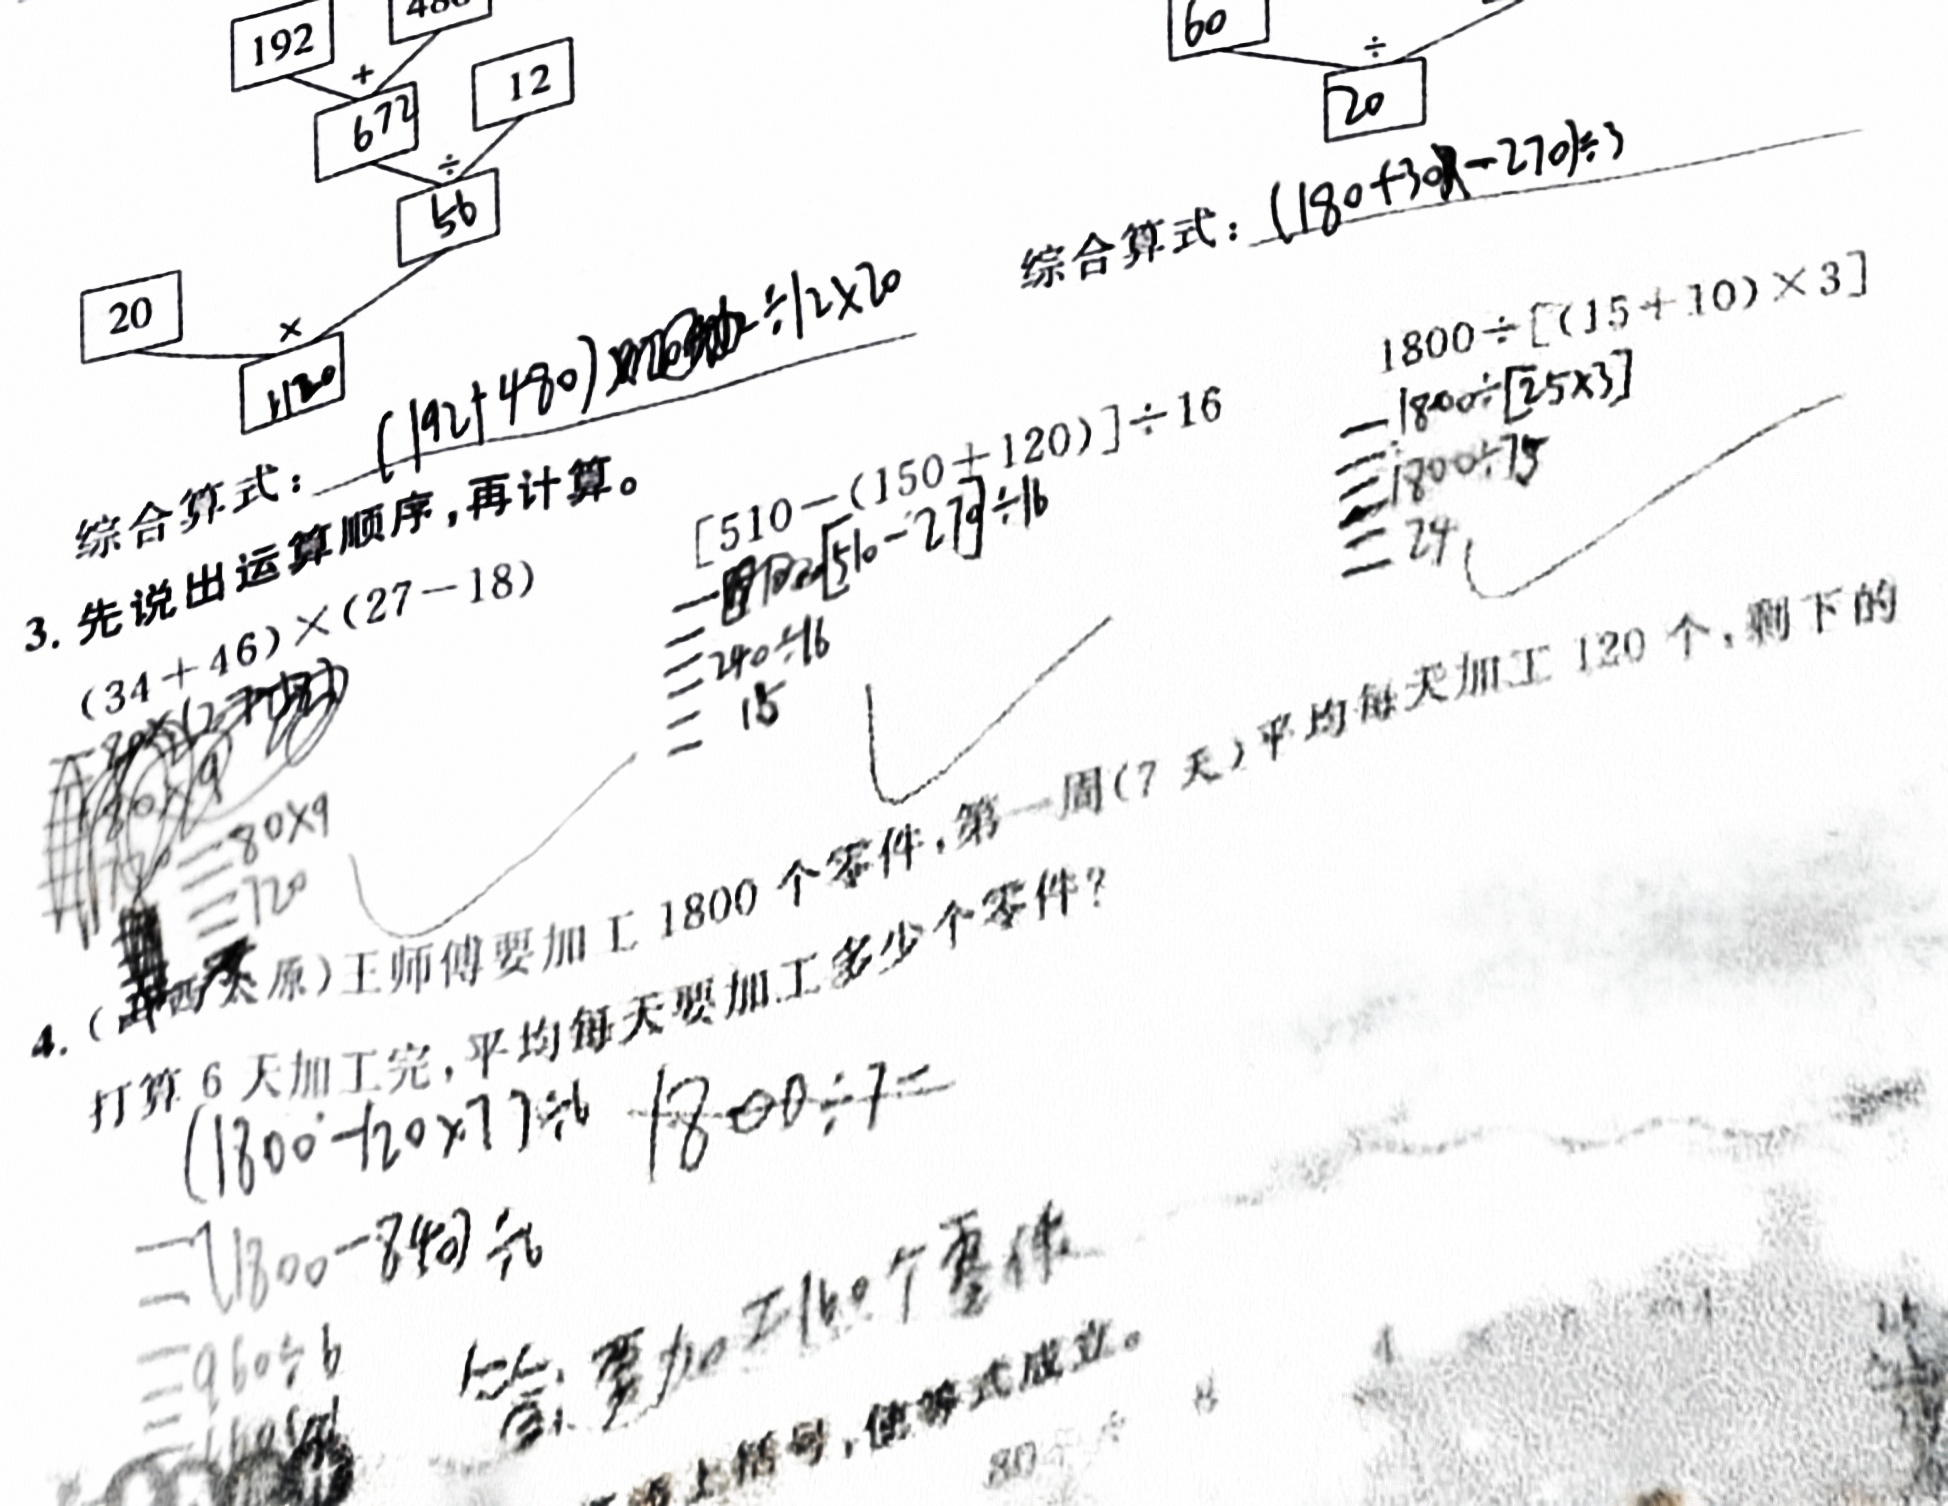 192
480
+
672
12
÷
56
20
×
1120
综合算式：(192+480)÷12×20
60
÷
20
综合算式：(180+30-270)÷3
3. 先说出运算顺序，再计算。
(34+46)×(27-18)
=80×9
=720
[510-(150+120)]÷16
=[510-270]÷16
=240÷16
= 15
1800÷[(15+10)×3]
=1800÷[25×3]
=1800÷75
=24
4. (西太原)王师傅要加工 1800 个零件，第一周(7 天)平均每天加工 120 个，剩下的
打算 6 天加工完，平均每天要加工多少个零件？
(1800-120×7)÷6 1800÷7=
=(1800-840)÷6
=960÷6
答：要加工160个零件
上括号，使等式成立。
80 ÷ 8